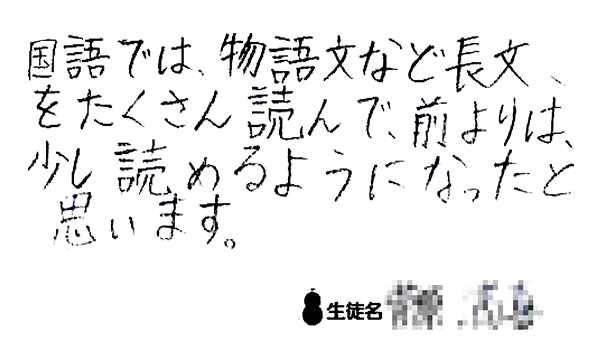 国語では、物語文など長文、
をたくさん読んで、前よりは、
少し読めるようになったと
思います。
生徒名